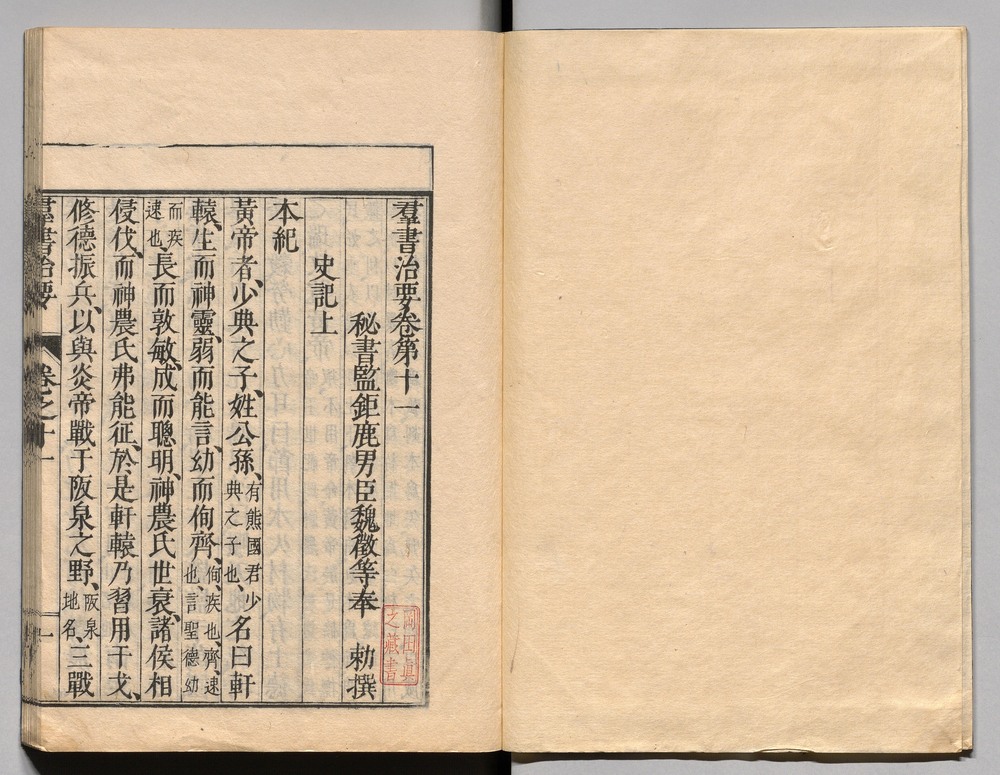 羣書治要卷第十一
秘書監鉅鹿男臣魏徵等奉　勅撰
史記上
本紀
黃帝者、少典之子、姓公孫、有熊國君少典之子也、名曰軒
轅、生而神靈、弱而能言、幼而侚齊、侚、疾也、齊、速也、言聖德幼
而疾速也、長而敦敏、成而聰明、神農氏世衰、諸侯相
侵伐、而神農氏弗能征、於是軒轅乃習用干戈、
修德振兵、以與炎帝戰于阪泉之野、阪泉地名、三戰
羣書治要　卷之十一　一
岡田眞
之藏書